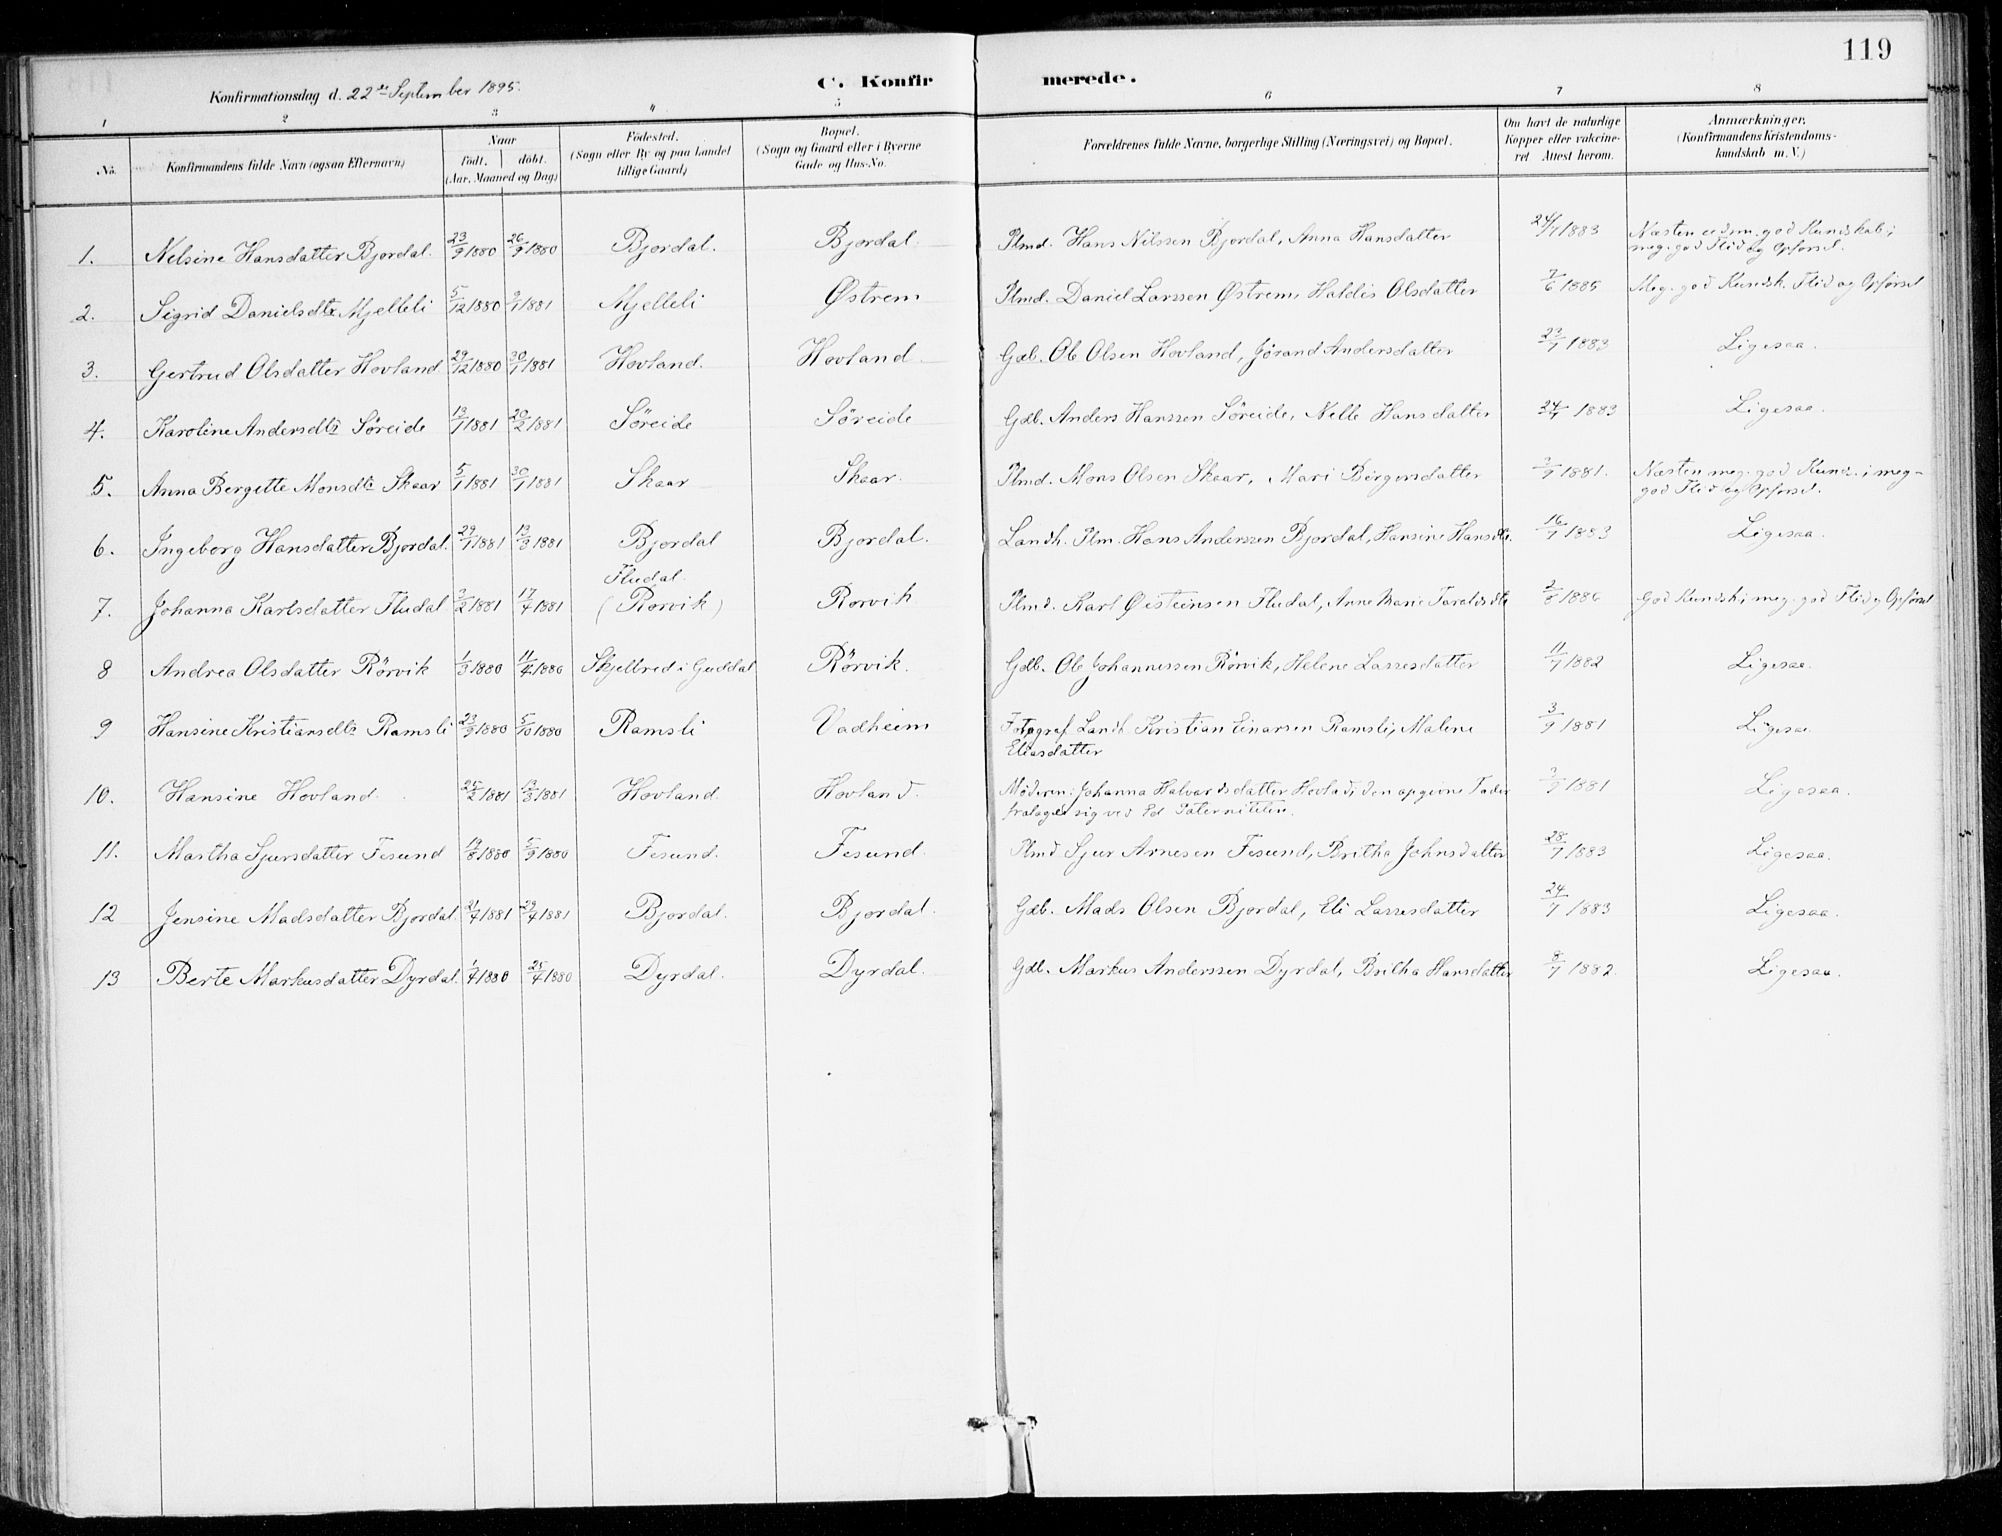 119
Konfirmationsdag d. 22de September 1895.
C. Konfir merede.
1 2 3 4 5 6 7 8
No. Konfirmandens fulde Navn (ogsaa Efternavn) Naar födt. döbt. (Aar, Maaned og Dag) Födested. (Sogn eller By og paa Landet tillige Gaard) Bopæl. (Sogn og Gaard eller i Byerne Gade og Hus-No. Forældrenes fulde Navne, borgerlige Stilling (Næringsvei) og Bopæl. Om havt de naturlige Kopper eller vakcineret Attest herom. Anmærkninger. (Konfirmandens Kristendomskundskab m. V.)
1. Nelsine Hansdatter Bjordal. 23/9 1880 26/9 1880 Bjordal. Bjordal. Plmd. Hans Nilssen Bjordal, Anna Hansdatter 24/7 1883 Næsten udm. god Kundskab; meg. god Flid og Opførsel.
2. Sigrid Danielsdtr Mjelleli 5/12 1880 /1 1881 Mjelleli Østrem Plmd. Daniel Larssen Østrem, Haldis Olsdatter 7/6 1885 Meg. god Kundsk. Flid og Opførsel
3. Gertrud Olsdatter Hovland 29/12 1880 30/1 1881 Hovland. Hovland Gdb. Ole Olsen Hovland, Jørand Andersdatter 23/7 1883 Ligesaa.
4. Karoline Andersdtr Söreide 13/1 1881 20/2 1881 Söreide Söreide Gdb. Anders Hanssen Söreide, Nelle Hansdatter 24/7 1883 Ligesaa.
5. Anna Bergitte Monsdtr Skaar 5/1 1881 30/1 1881 Skaar Skaar. Plmd. Mons Olsen Skaar, Mari Børgersdatter 3/9 1881. Næsten meg. god Kunds.; meg. god Flid og Opførsel.
6. Ingeborg Hansdatter Bjordal. 29/1 1881 13/3 1881 Bjordal Bjordal. Landh. Plm. Hans Anderssen Bjordal, Hansine Hansdtr. 16/7 1883 Ligesaa.
7. Johanna Karlsdatter Fludal 3/2 1881 17/4 1881 Fludal. (Rørvik) Rørvik Plmd. Karl Øisteinsen Fludal, Anne Marie Taraldsdtr 2/8 1886 God Kundsk; meg. god Flid og Opførsel
8 Andrea Olsdatter Rörvik 1/3 1880 11/4 1880 Skjelbred i Guddal Rörvik. Gdb. Ole Johannessen Rörvik, Helene Lassesdatter 11/7 1882 Ligesaa.
9 Hansine Kristiansdtr Ramsli 23/9 1880 5/10 1880 Ramsli Vadheim Fotograf Landh Kristian Einarsen Ramsli, Malene Eliasdatter 3/9 1881 Ligesaa
10. Hansine Hovland. 25/2 1881 13/3 1881 Hovland. Hovland. Moderen: Johanna Halvardsdatter Hovland; den opgivne Fader fralagde sig ved Ed Paterniteten. 3/9 1881 Ligesaa.
11. Martha Sjursdatter Fesund 19/8 1880 5/9 1880 Fesund. Fesund. Plmd Sjur Arnesen Fesund, Britha Johnsdatter 28/7 1883 Ligesaa.
12 Jensine Madsdatter Bjordal. 21/4 1881 29/4 1881 Bjordal. Bjordal. Gdb. Mads Olsen Bjordal, Eli Lassesdatter 24/7 1883 Ligesaa.
13 Berte Markusdatter Dyrdal. 1/4 1880 25/4 1880 Dyrdal. Dyrdal. Gdb. Markus Anderssen Dyrdal, Britha Hansdatter 8/7 1882. Ligesaa.